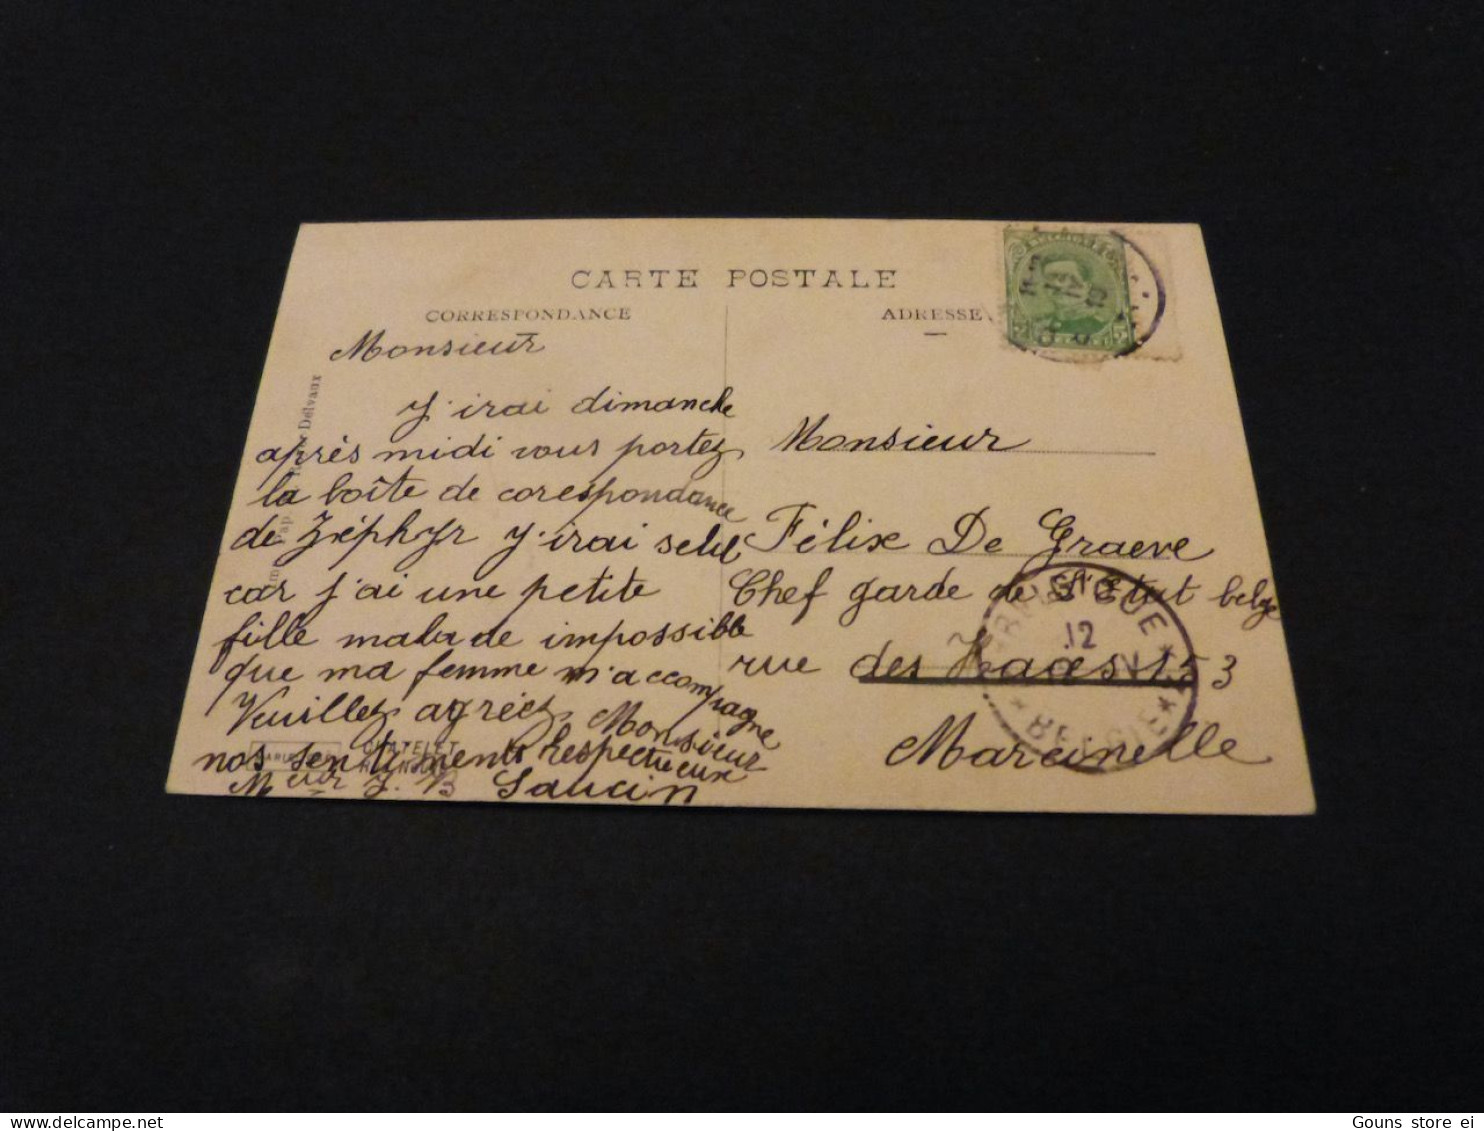 CARTE POSTALE
CORRESPONDANCE
ADRESSE
Monsieur
J'irai dimanche
après midi vous portez
la boîte de corespondance
de Zéphyr J'irai seul
car j'ai une petite
fille malade impossible
que ma femme m'accompagne
Veuillez agréez Monsieur
nos sentiments respectueux
Saucin
Monsieur
Félix De Graeve
Chef garde de l'Etat belge
rue des Haies 153
Marcinelle
Delvaux
CHATELET
12
BELGIE
5
Gouns store ei